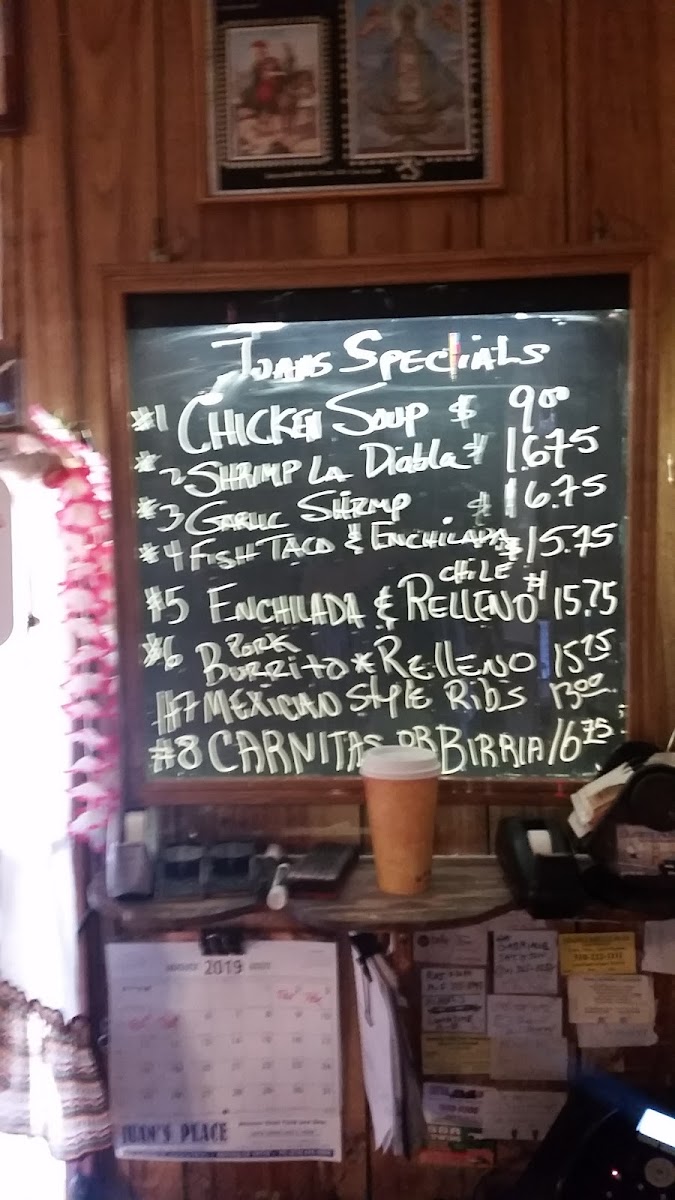 Juans Specials
#1 Chicken Soup $ 9⁰⁰
#2 Shrimp La Diabla $ 16.75
#3 Garlic Shrimp $ 16.75
#4 Fish Taco & Enchilada $ 15.75
Chile
#5 Enchilada & Relleno $ 15.75
Pork
#6 Burrito * Relleno 15⁷⁵
#7 Mexican Style Ribs 13⁰⁰
#8 Carnitas or Birria 16⁷⁵
2019
JUAN'S PLACE